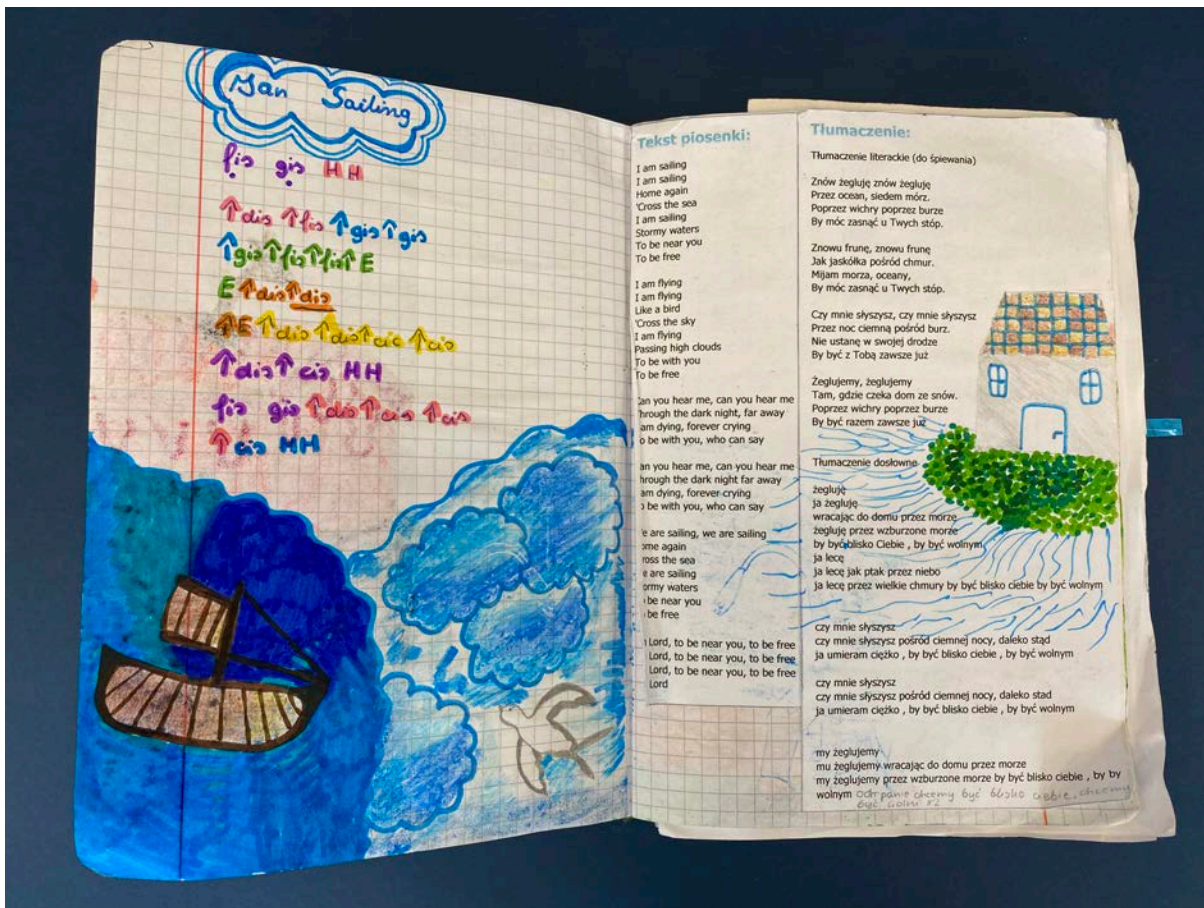 Jan Sailing
fis gis H H
↑dis ↑fis ↑gis ↑gis
↑gis ↑fis ↑fis ↑E
E ↑dis ↑dis
↑E ↑dis ↑dis ↑cic ↑cis
↑dis ↑cis HH
fis gis ↑dis ↑cis ↑cis
↑cis HH
Tekst piosenki:
I am sailing
I am sailing
Home again
'Cross the sea
I am sailing
Stormy waters
To be near you
To be free
I am flying
I am flying
Like a bird
'Cross the sky
I am flying
Passing high clouds
To be with you
To be free
an you hear me, can you hear me
hrough the dark night, far away
am dying, forever crying
o be with you, who can say
an you hear me, can you hear me
hrough the dark night far away
am dying, forever crying
be with you, who can say
e are sailing, we are sailing
ome again
ross the sea
e are sailing
ormy waters
be near you
be free
Lord, to be near you, to be free
Lord, to be near you, to be free
Lord, to be near you, to be free
Lord
Tłumaczenie:
Tłumaczenie literackie (do śpiewania)
Znów żegluję znów żegluję
Przez ocean, siedem mórz.
Poprzez wichry poprzez burze
By móc zasnąć u Twych stóp.
Znowu frunę, znowu frunę
Jak jaskółka pośród chmur.
Mijam morza, oceany,
By móc zasnąć u Twych stóp.
Czy mnie słyszysz, czy mnie słyszysz
Przez noc ciemną pośród burz.
Nie ustanę w swojej drodze
By być z Tobą zawsze już
Żeglujemy, żeglujemy
Tam, gdzie czeka dom ze snów.
Poprzez wichry poprzez burze
By być razem zawsze już
Tłumaczenie dosłowne
żegluję
ja żegluję
wracając do domu przez morze
żegluję przez wzburzone morze
by być blisko Ciebie , by być wolnym
ja lecę
ja lecę jak ptak przez niebo
ja lecę przez wielkie chmury by być blisko ciebie by być wolnym
czy mnie słyszysz
czy mnie słyszysz pośród ciemnej nocy, daleko stąd
ja umieram ciężko , by być blisko ciebie , by być wolnym
czy mnie słyszysz
czy mnie słyszysz pośród ciemnej nocy, daleko stad
ja umieram ciężko , by być blisko ciebie , by być wolnym
my żeglujemy
mu żeglujemy wracając do domu przez morze
my żeglujemy przez wzburzone morze by być blisko ciebie , by by
wolnym och panie chcemy być blisko ciebie, chcemy
być wolni x2